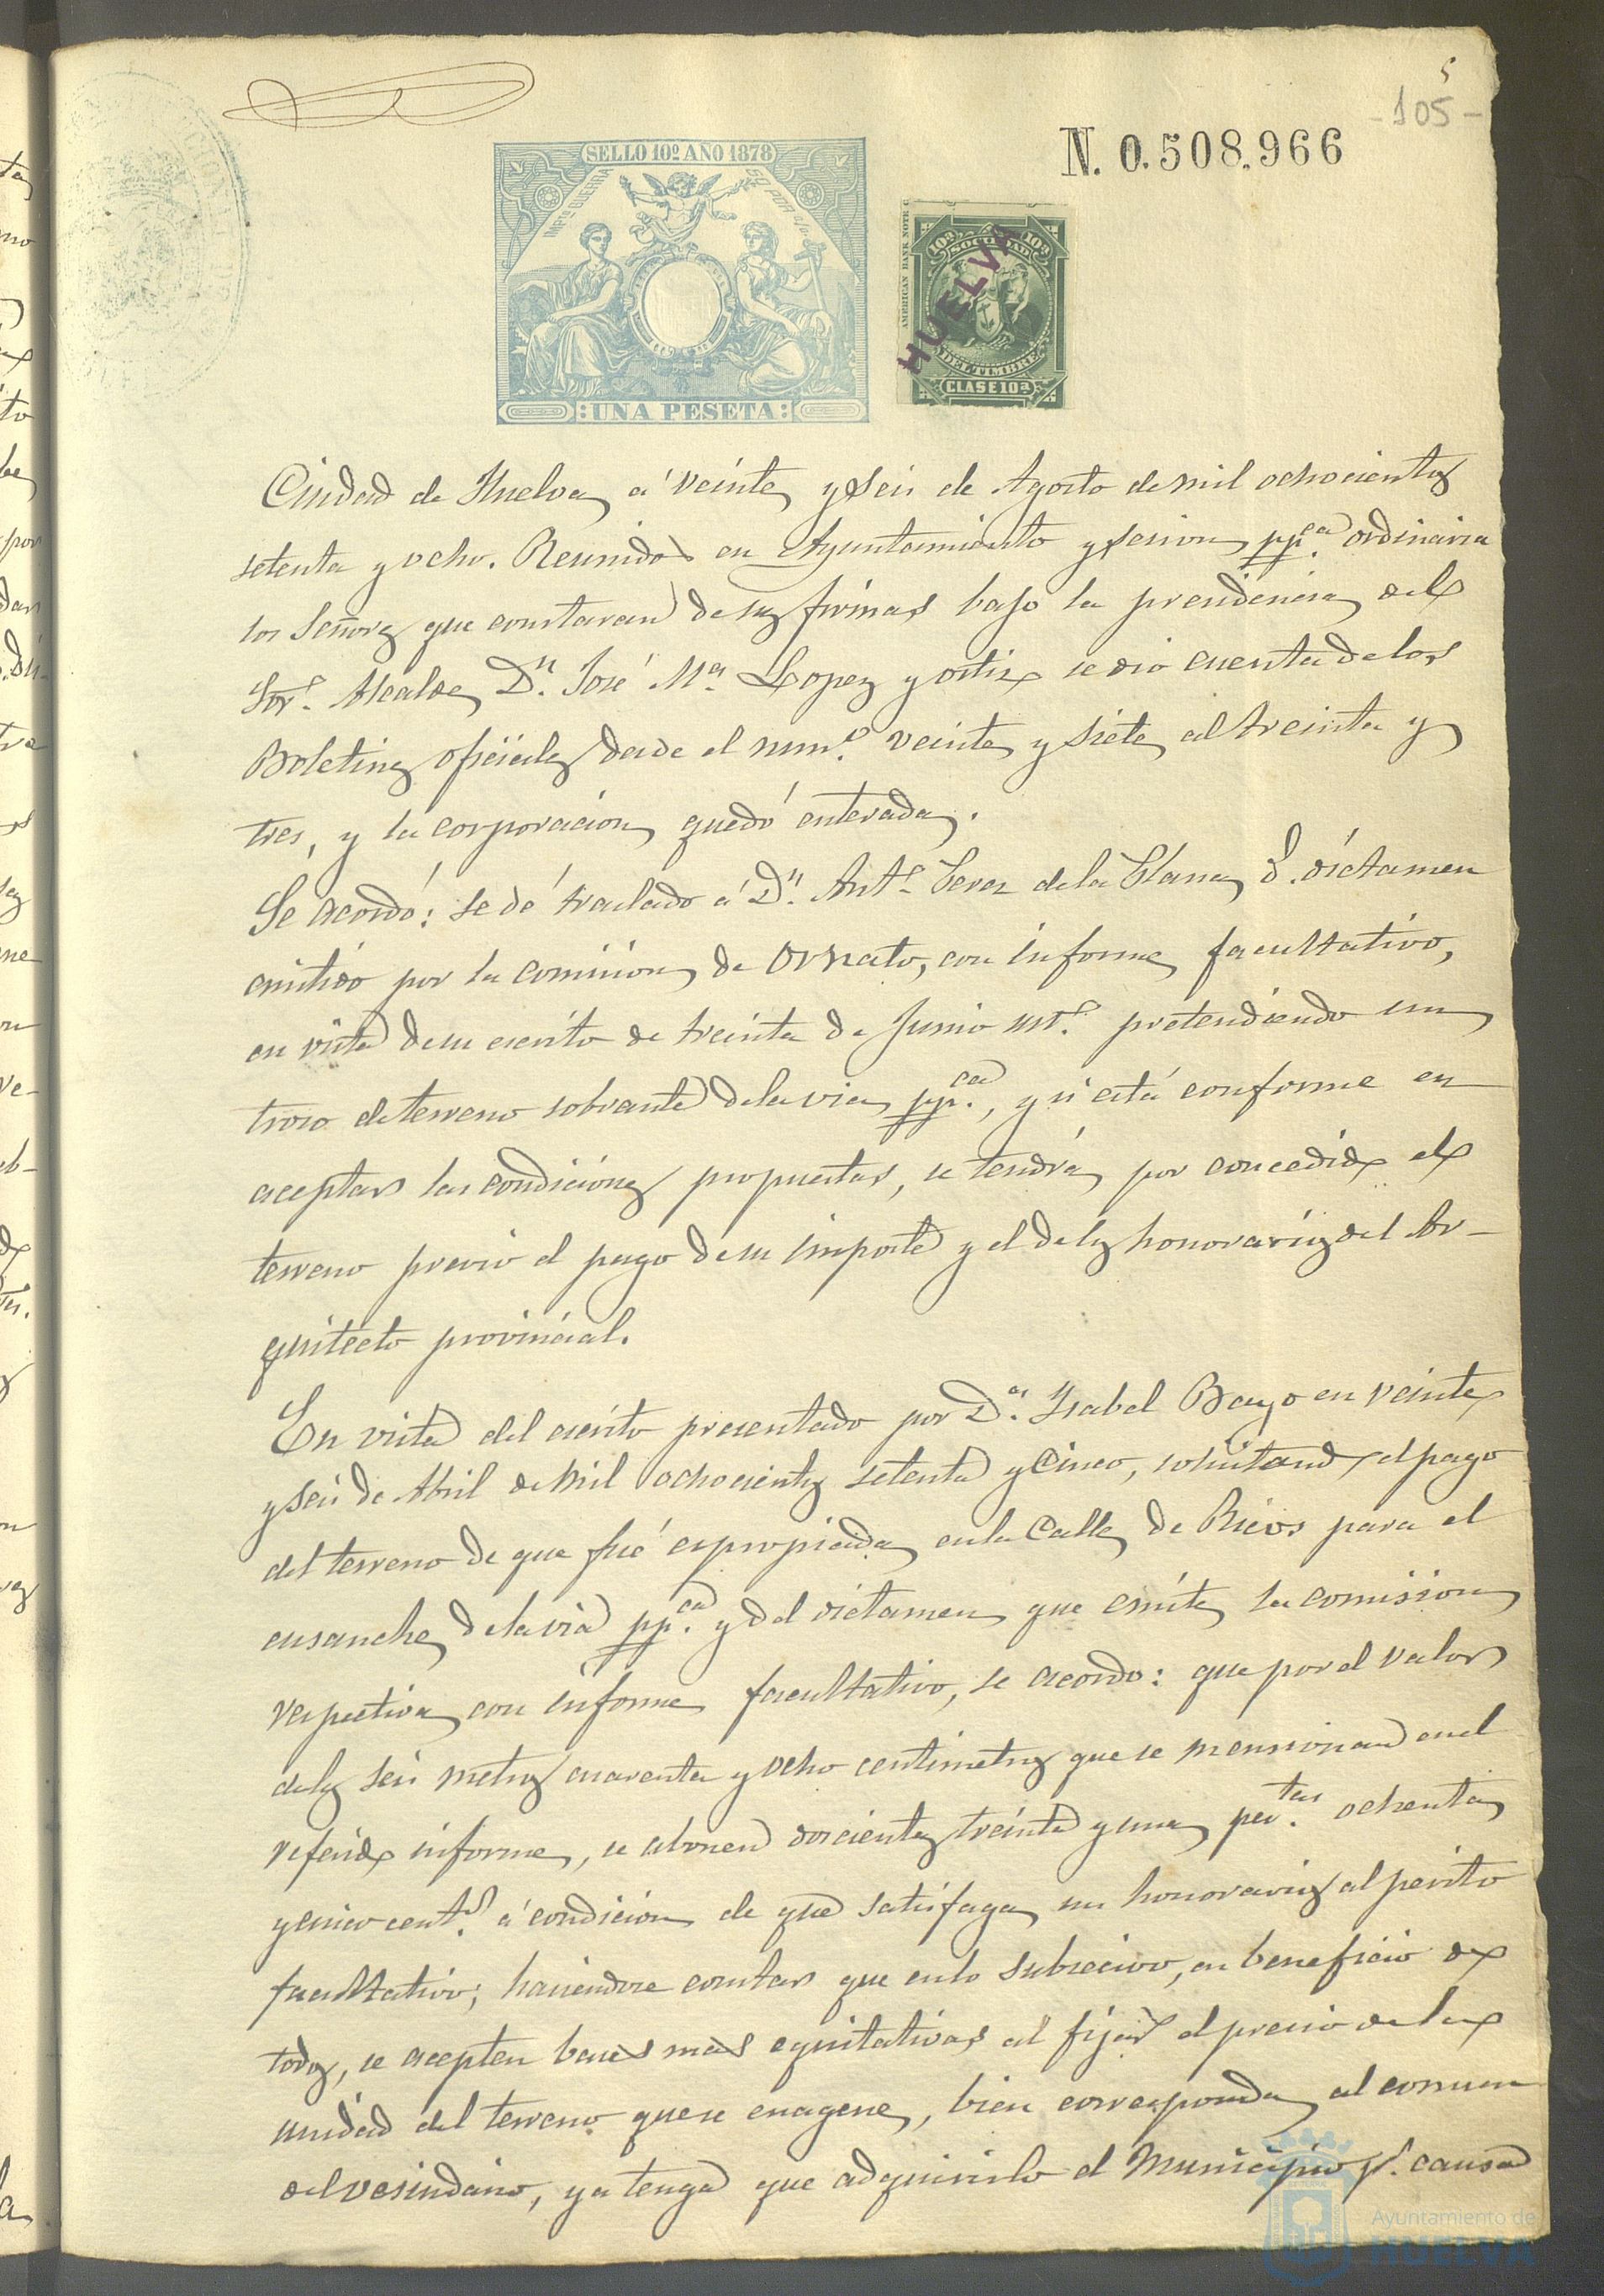 5
- 105 -
N. 0.508.966
SELLO 10º AÑO 1878
UNA PESETA
AMERICAN BANK NOTE C
10ª SOCIEDAD 10ª
DEL TIMBRE
CLASE 10ª
HUELVA
Ciudad de Huelva á veinte y seis de Agosto de mil ochocientos
setenta y ocho. Reunidos en Ayuntamiento y sesion ppᶜᵃ. ordinaria
los Señores que constaran de sus firmas bajo la presidencia del
Sor. Alcalde Dⁿ. José Mª. Lopez y Ortiz se dió cuenta de los
Boletines oficiales desde el numº. veinte y siete al treinta y
tres, y la corporacion quedó enterada.
Se acordó: se dé traslado á Dⁿ. Antº. Perez de la dictamen
emitido por la comision de Ornato, con informe facultativo,
en vista de su escrito de treinta de Junio pretendiendo un
trozo de terreno sobrante de la via ppᶜᵃ., y si está conforme en
aceptar las condiciones propuestas, se tendrá por concedido el
terreno previo el pago de su importe y el de los honorarios del Ar-
quitecto provincial.
En vista del escrito presentado por Dª. Isabel Bayo en veinte
y seis de Abril de mil ochocientos setenta y cinco, solicitando el pago
del terreno de que fué espropiada en la Calle de Ricos para el
ensanche de la via ppᶜᵃ. y del dictamen que emite la comision
respectiva con informe facultativo, se acordo: que por el valor
de los seis metros cuarenta y ocho centimetros que se mensionan en el
referido informe, se abonen doscientas treinta y una pesᵗᵃˢ. ochenta
y cinco centˢ. á condicion de que satisfaga sus honorarios al perito
facultativo; haciendose constar que en lo subcecivo, en beneficio de
todos, se acepten bases mas equitativas al fijar el precio de la
unidad del terreno que se enagene, bien corresponda al comun
del vecindario, ya tenga que adquirirlo el Municipio pʳ. causa
Ayuntamiento de
HUELVA